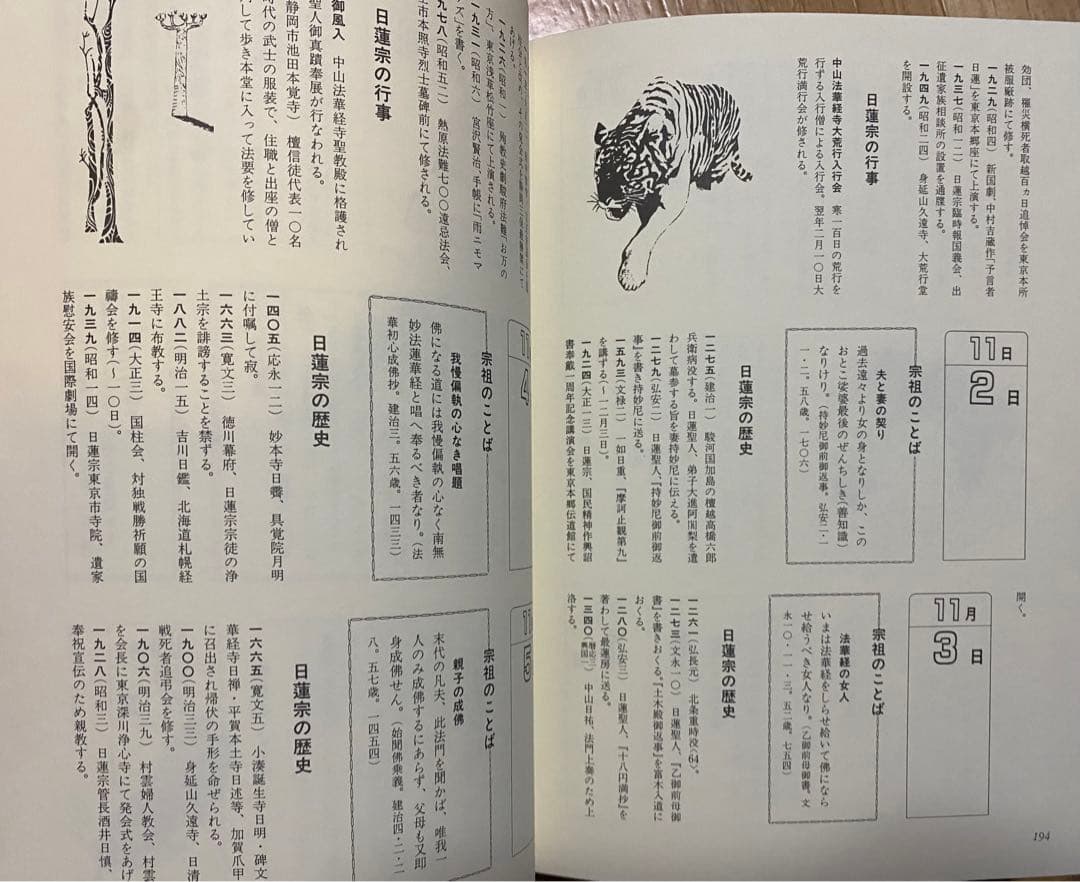 効団、罹災横死者取越百ヵ日追悼会を東京本所
被服廠跡にて修す。
一九二九(昭和四) 新国劇、中村吉蔵作「予言者
日蓮」を東京本郷座にて上演する。
一九三七(昭和一二) 日蓮宗臨時報国義会、出
征遺家族相談所の設置を通牒する。
一九四九(昭和二四) 身延山久遠寺、大荒行堂
を開設する。
日蓮宗の行事
中山法華経寺大荒行入行会 寒一百日の荒行を
行ずる入行僧による入行会。翌年二月一〇日大
荒行満行会が修される。
11日
2日
宗祖のことば
夫と妻の契り
過去遠々より女の身となりしか、この
おとこ娑婆最後のぜんちしき(善知識)
なりけり。(持妙尼御前御返事。弘安二・一
一・二。五八歳。一七〇六)
日蓮宗の歴史
一二七五(建治一) 駿河国加島の檀越高橋六郎
兵衛病没する。日蓮聖人、弟子大進阿闍梨を遣
わして墓参する旨を妻持妙尼に伝える。
一二七九(弘安二) 日蓮聖人、『持妙尼御前御返
事』を書き持妙尼に送る。
一五九三(文禄二) 一如日重、『摩訶止観第九』
を講ずる(〜一二月三日)。
一九二四(大正一三) 日蓮宗、国民精神作興詔
書奉戴一周年記念講演会を東京本郷伝道館にて
開く。
11月
3日
宗祖のことば
法華経の女人
いまは法華経をしらせ給いて佛になら
せ給うべき女人なり。(乙御前母御書。文
永一〇・一一・三。五二歳。七五四)
日蓮宗の歴史
一二六一(弘長元) 北条重時没(64)。
一二七三(文永一〇) 日蓮聖人、『乙御前母御
書』を書きおくる。『土木殿御返事』を富木入道に
おくる。
一二八〇(弘安三) 日蓮聖人、『十八円満抄』を
著わして最蓮房に送る。
一三四〇(暦応三 興国一) 中山日祐、法門上奏のため上
洛する。
194
一九二六(昭和一)
殉教史劇駿府法難「お万の
方」、東京浅草松竹座にて上演される。
一九三一(昭和六) 宮沢賢治、手帳に「雨ニモマ
ケズ」を書く。
九七八(昭和五三) 熱原法難七〇〇遠忌法会、
士市本照寺烈士墓碑前にて修される。
日蓮宗の行事
御風入 中山法華経寺聖教殿に格護され
聖人御真蹟奉展が行なわれる。
静岡市池田本覚寺) 檀信徒代表一〇名
時代の武士の服装で、住職と出座の僧と
して歩き本堂に入って法要を修してい
11
4
宗祖のことば
我慢偏執の心なき唱題
佛になる道には我慢偏執の心なく南無
妙法蓮華経と唱へ奉るべき者なり。(法
華初心成佛抄。建治三。五六歳。一四三三)
日蓮宗の歴史
一四〇五(応永一二) 妙本寺日霽、具覚院月明
に付嘱して寂。
一六六三(寛文三) 徳川幕府、日蓮宗宗徒の浄
土宗を誹謗することを禁ずる。
一八八二(明治一五) 吉川日鑑、北海道札幌経
王寺に布教する。
一九一四(大正三) 国柱会、対独戦勝祈願の国
禱会を修す(〜一〇日)。
一九三九(昭和一四) 日蓮宗東京市寺院、遺家
族慰安会を国際劇場にて開く。
5
宗祖のことば
親子の成佛
末代の凡夫、此法門を聞かば、唯我一
人のみ成佛するにあらず、父母も又即
身成佛せん。(始聞佛乗義。建治四・二・二
八。五七歳。一四五四)
日蓮宗の歴史
一六六五(寛文五) 小湊誕生寺日明・碑文
華経寺日禅・平賀本土寺日述等、加賀爪甲
に召出され帰伏の手形を命ぜられる。
一九〇〇(明治三三) 身延山久遠寺、日清
戦死者追弔会を修す。
一九〇六(明治三九) 村雲婦人教会、村雲
を会長に東京深川浄心寺にて発会式をあげ
一九二八(昭和三) 日蓮宗管長酒井日慎、
奉祝宣伝のため親教する。